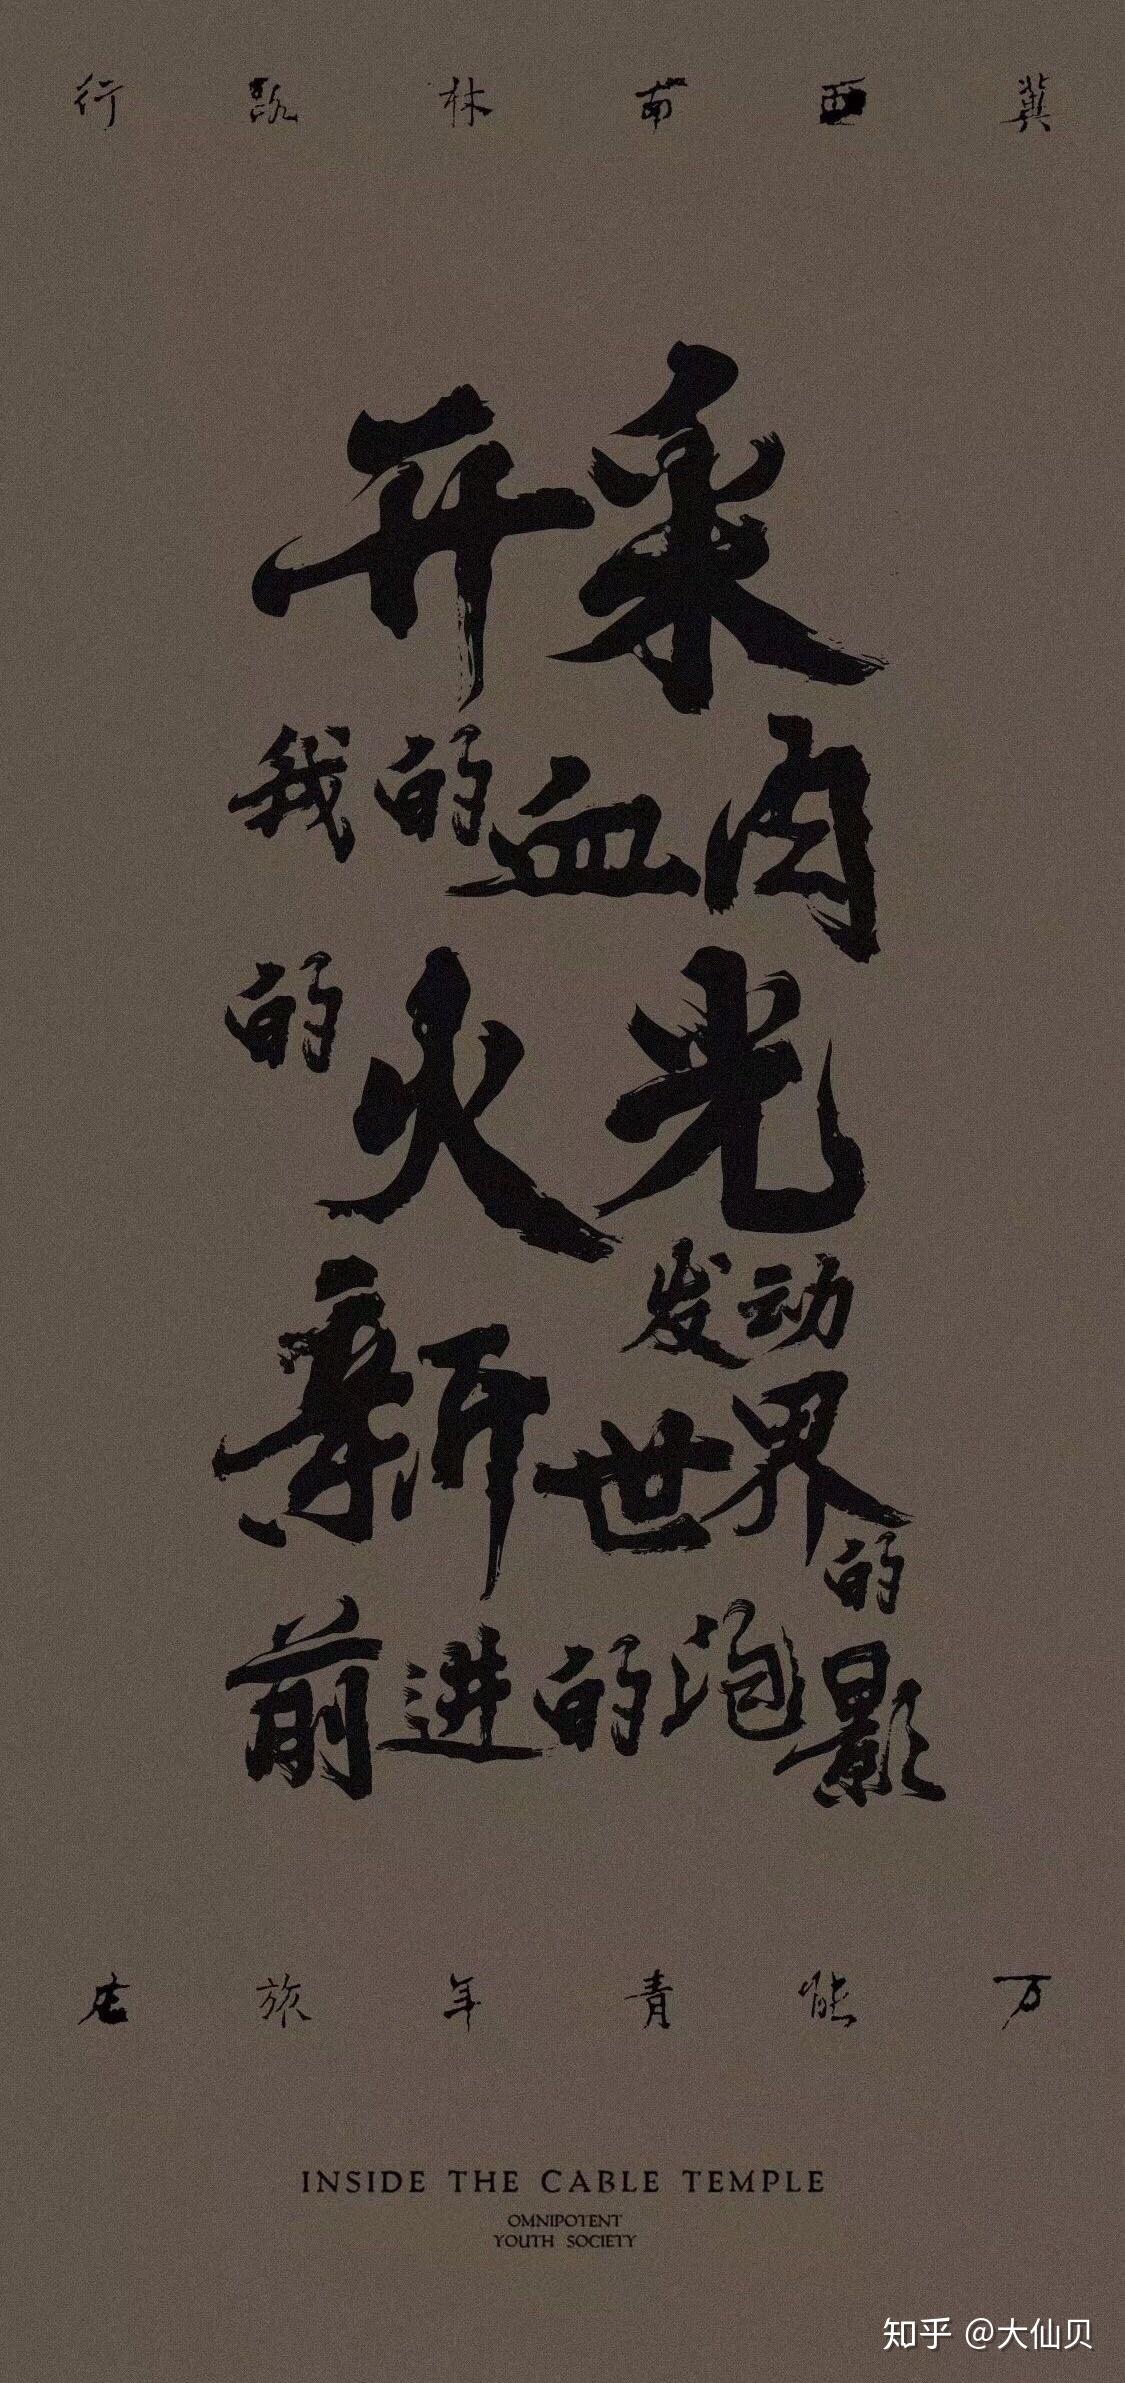 冀西南林凯行
开采
我的血肉
的火光
发动
新世界的
前进的泡影
万能青年旅店
INSIDE THE CABLE TEMPLE
OMNIPOTENT
YOUTH SOCIETY
知乎 @大仙贝